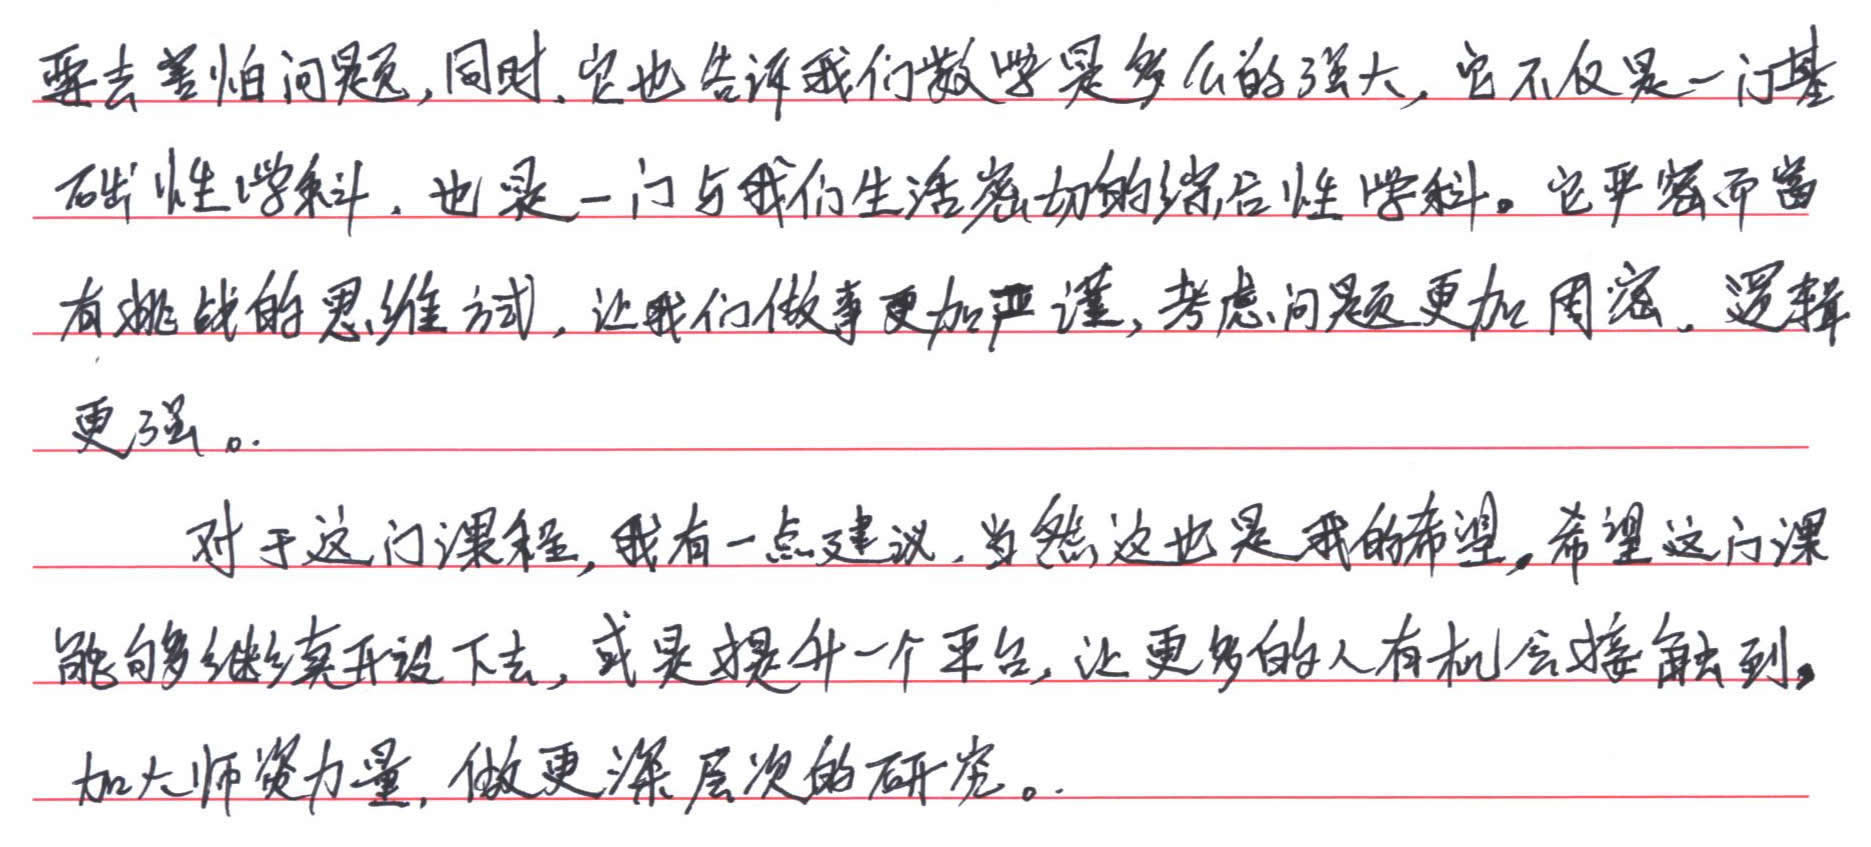 要去害怕问题,同时,它也告诉我们数学是多么的强大,它不仅是一门基
础性学科,也是一门与我们生活密切的综合性学科。它严密而富
有挑战的思维方式,让我们做事更加严谨,考虑问题更加周密,逻辑
更强。
对于这门课程,我有一点建议,当然这也是我的希望,希望这门课
能够继续开设下去,或是提升一个平台,让更多的人有机会接触到,
加大师资力量,做更深层次的研究。